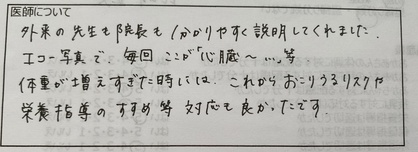 医師について
外来の先生も院長も分かりやすく説明してくれました。
エコー写真で、毎回ここが「心臓〜…」等
体重が増えすぎた時には、これからおこりうるリスクや
栄養指導のすすめ等 対応も良かったです。